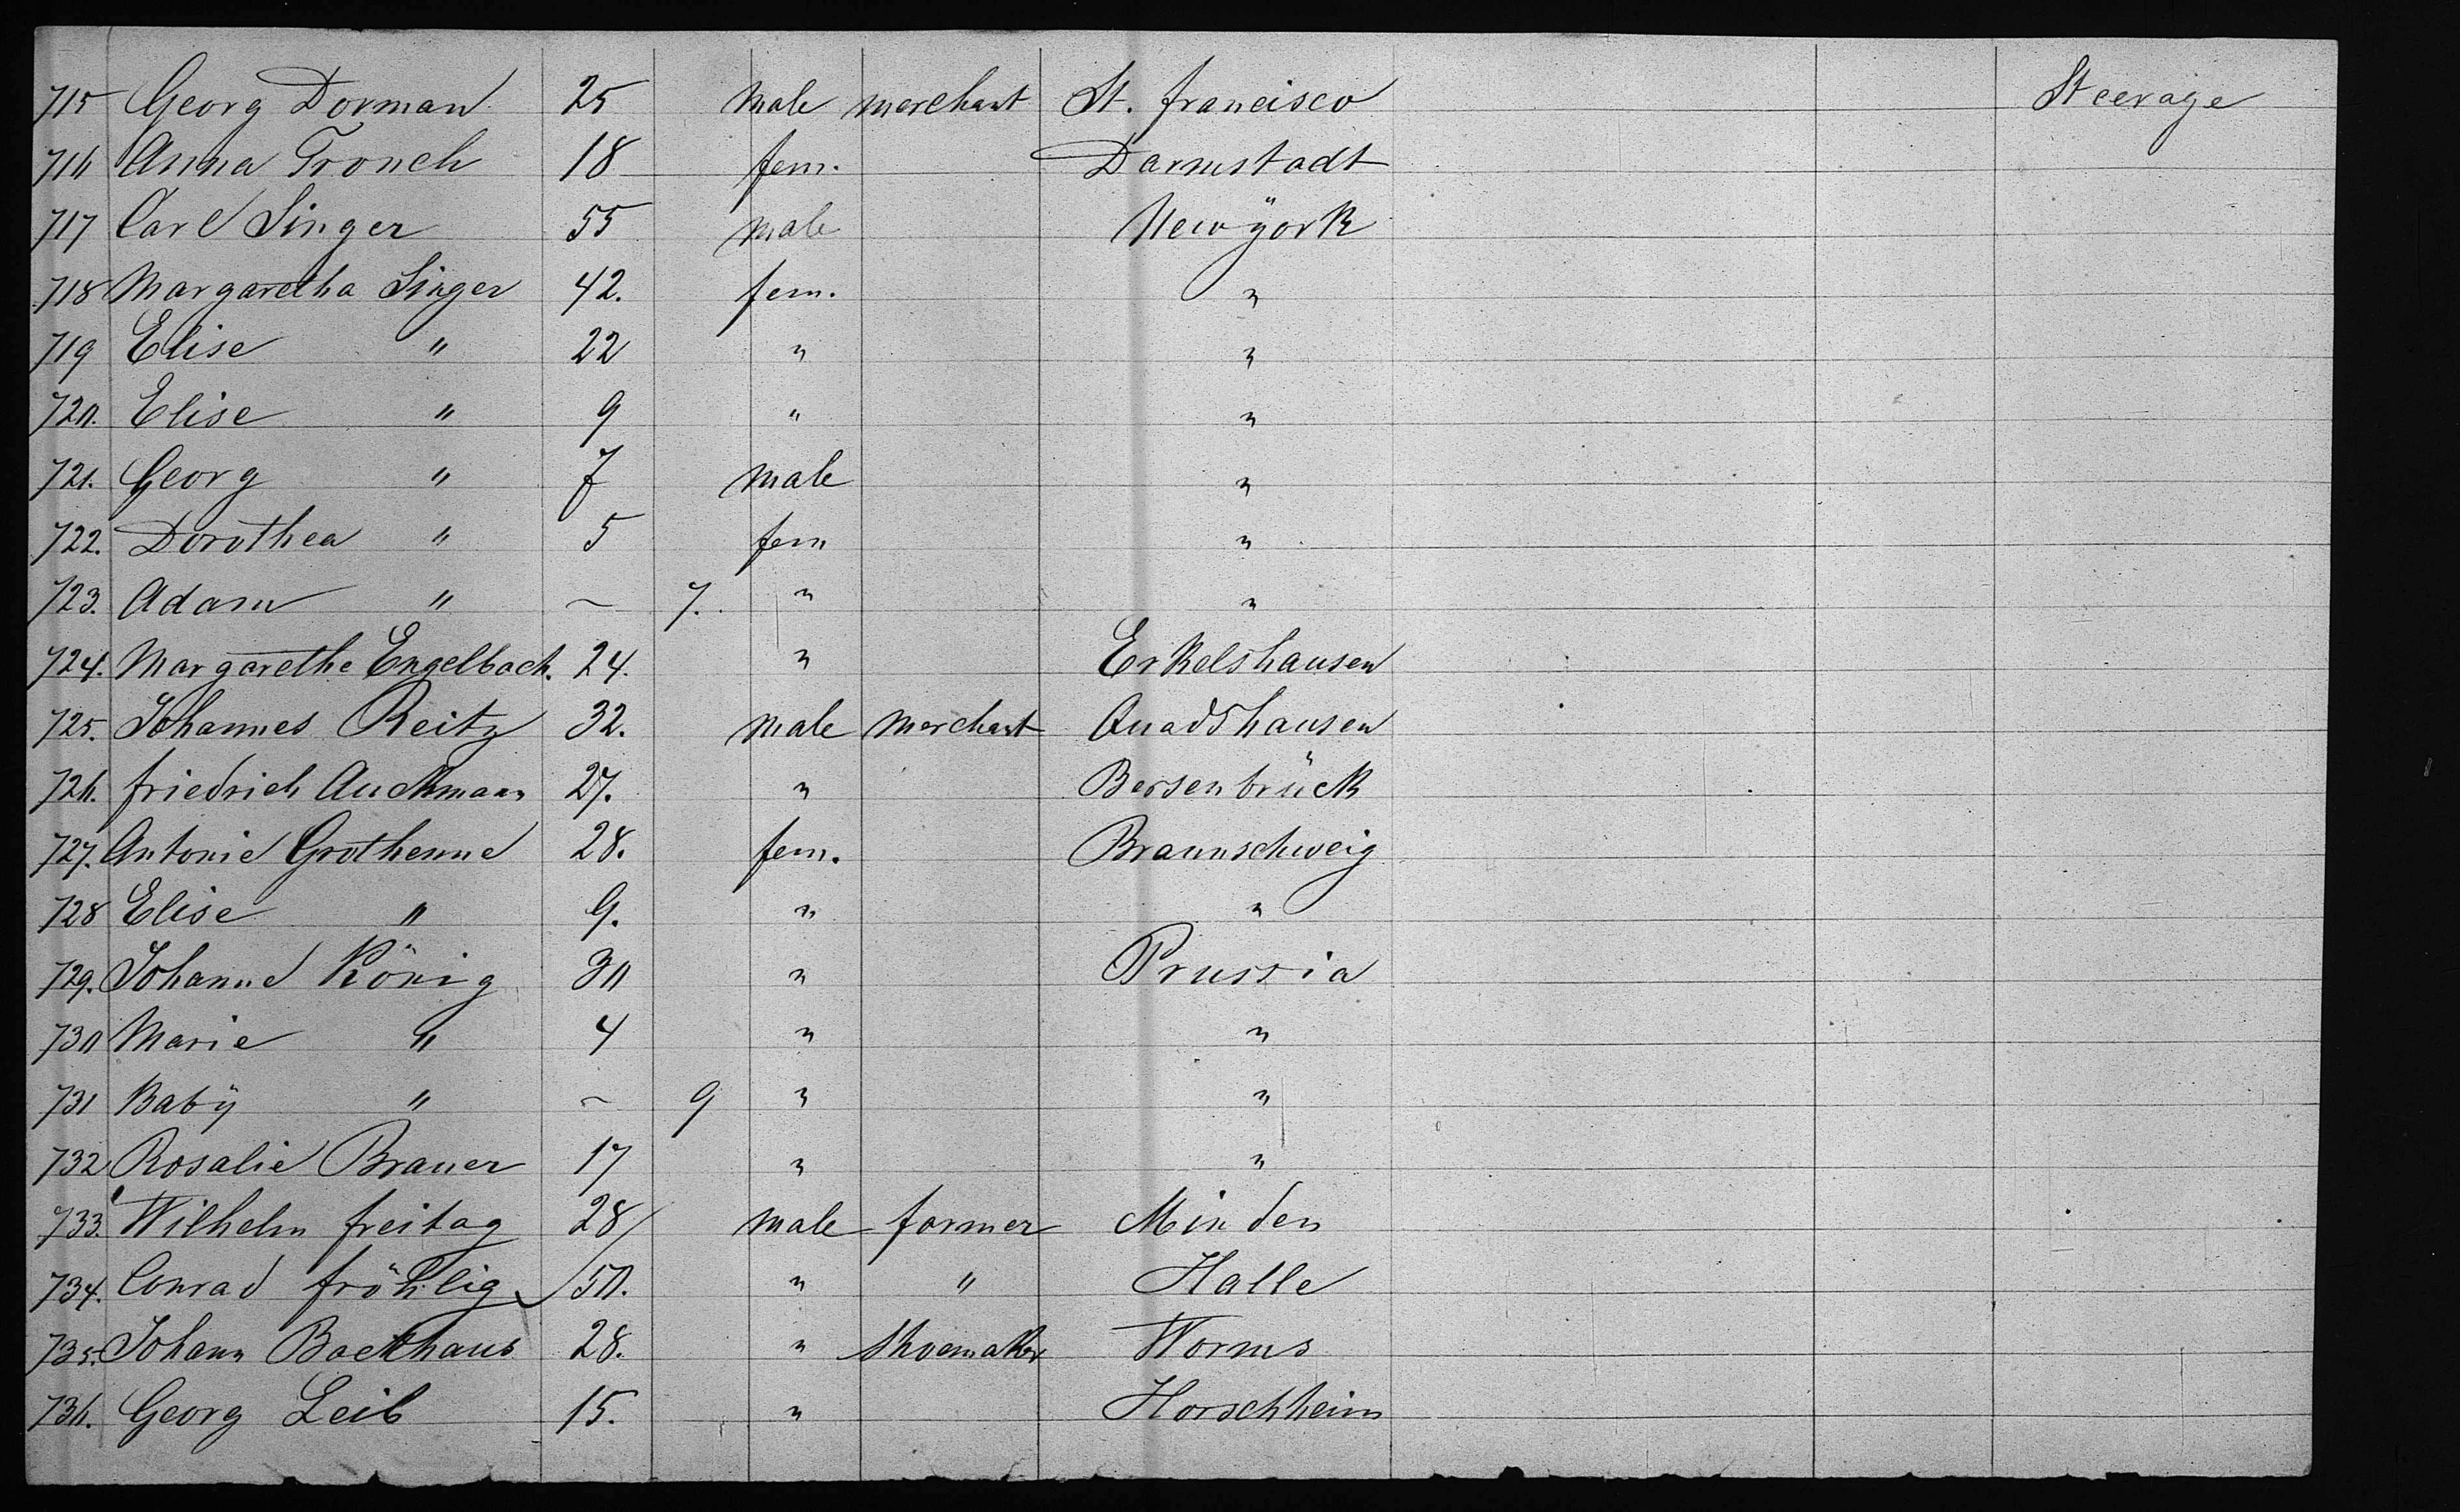 715 Georg Dorman 25 male merchant St. francisco Steerage
716 Anna Tronch 18 fem. Darmstadt
717 Carl Singer 55 male Newÿork
718 Margaretha Singer 42. fem. "
719 Elise " 22 " "
720. Elise " 9 " "
721. Georg " 7 male "
722. Dorothea " 5 fem "
723. Adam " – 7. " "
724. Margarethe Engelbach. 24. " Erkelshausen
725. Johannes Reitz 32. male merchant Quadshausen
726. friedrich Auckmann 27. " Bersenbrück
727. Antonie Grothenne 28. fem. Braunschweig
728 Elise " 9. " "
729. Johanne König 30 " Prussia
730 Marie " 4 " "
731 Babÿ " – 9 " "
732 Rosalie Brauer 17 " "
733. Wilhelm freitag 28 male farmer Minden
734. Conrad fröhlig 50. " " Halle
735. Johann Backhaus 28. " shoemaker Worms
736. Georg Leib 15. " Horschheim